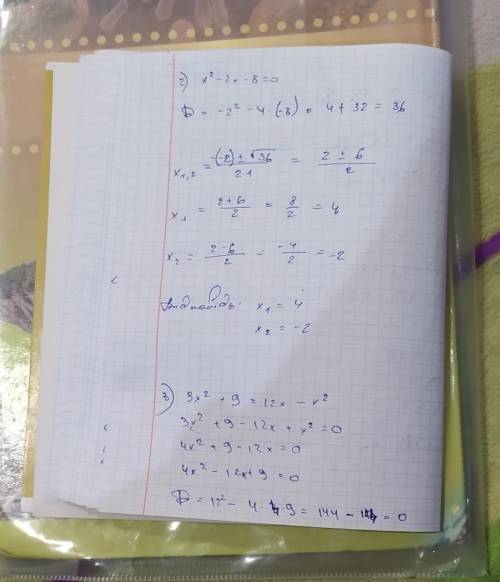 2) x² - 2x - 8 = 0
D = -2² - 4 (-8) = 4 + 32 = 36
x₁,₂ = -(-2) ± √36 / 2·1 = 2 ± 6 / 2
x₁ = 2+6 / 2 = 8 / 2 = 4
x₂ = 2-6 / 2 = -4 / 2 = -2
Відповідь: x₁ = 4
x₂ = -2
3) 3x² + 9 = 12x - x²
3x² + 9 - 12x + x² = 0
4x² + 9 - 12x = 0
4x² - 12x + 9 = 0
D = 12² - 4 · 4 · 9 = 144 - 144 = 0